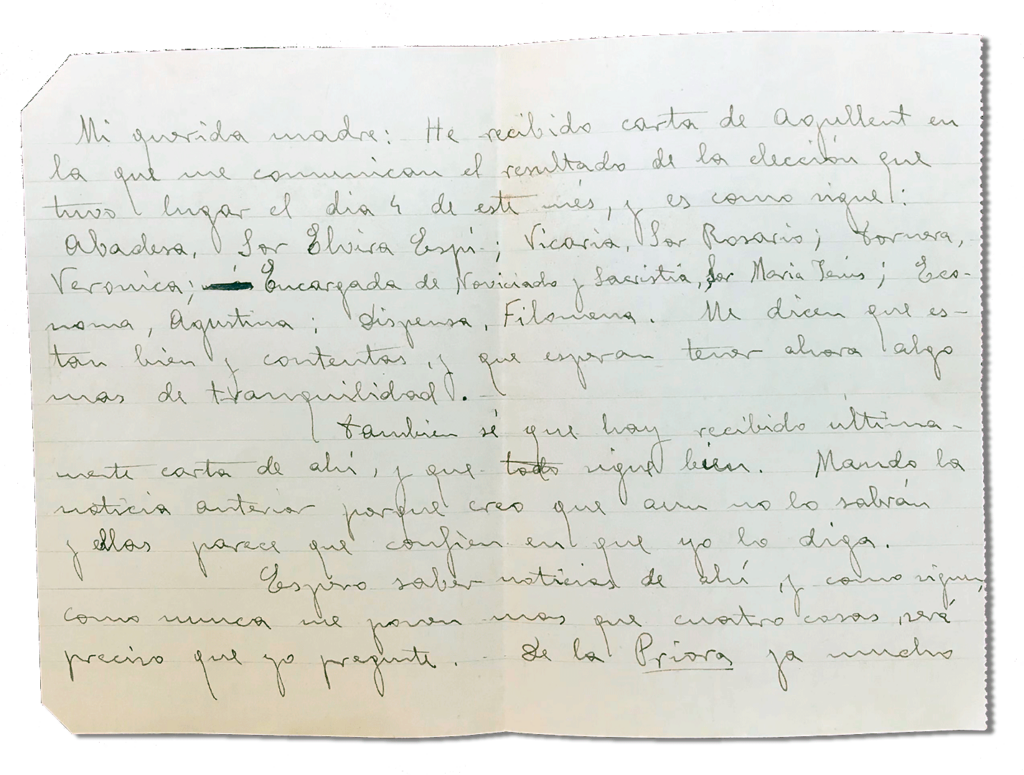 Mi querida madre: He recibido carta de Agullent en
la que me comunican el resultado de la elección que
tuvo lugar el dia 4 de este més, y es como sigue:
Abadesa, Sor Elvira Espí; Vicaria, Sor Rosario; tornera,
Veronica; Encargada de Noviciado y Sacristia, Sor Maria Jesús; Eco-
noma, Agustina; dispensa, Filomena. Me dicen que es-
tan bien y contentas, y que esperan tener ahora algo
mas de tranquilidad.
tambien sé que hay recibido última-
mente carta de ahí, y que todo sigue bien. Mando la
noticia anterior porque creo que aun no lo sabrán
y ellas parece que confien en que yo lo diga.
Espero saber noticias de ahí, y como siguen,
como nunca me ponen mas que cuatro cosas, será
preciso que yo pregunte. - De la Priora ya mucho